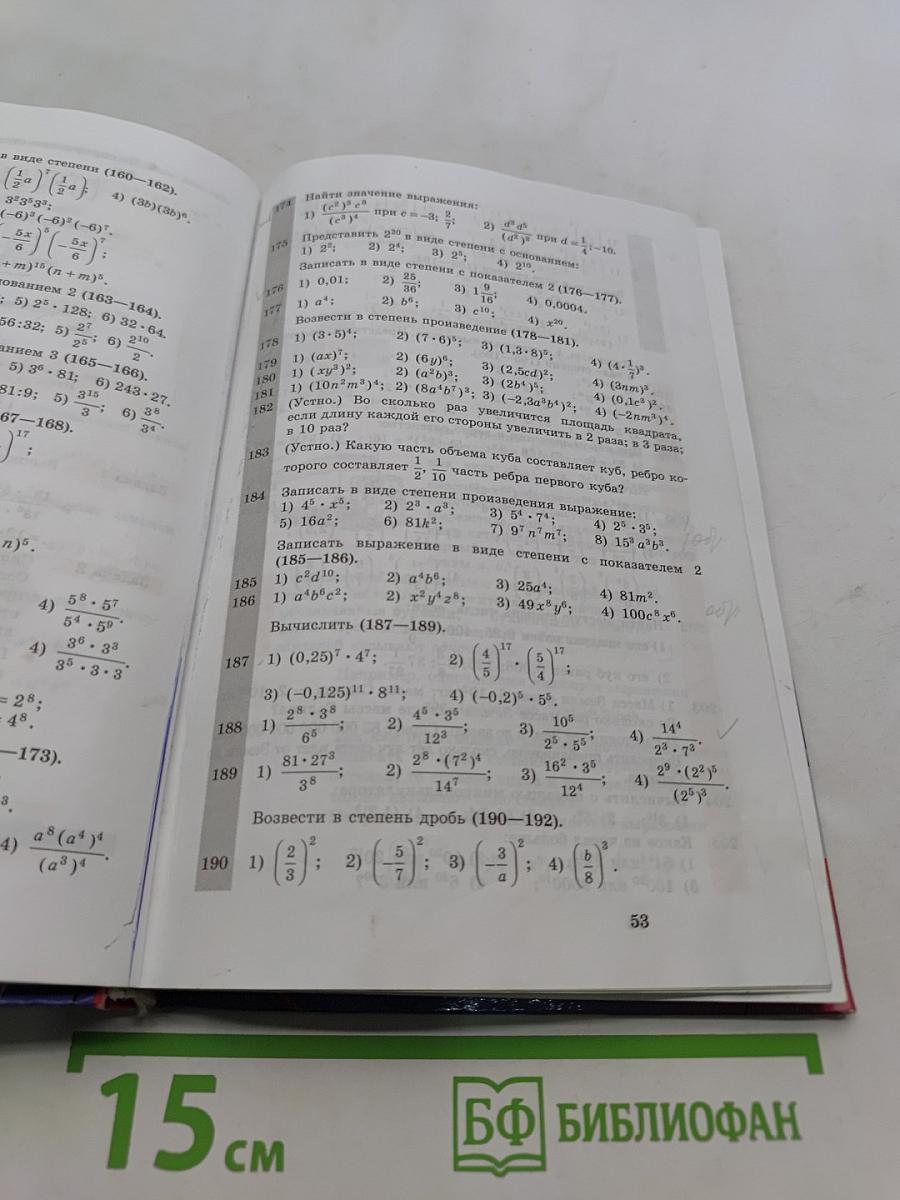 в виде степени (160—162).
(1/2 a)^7 (1/2 a); 4) (3b)(3b)^6.
3^2 3^5 3^3;
(−6)^3(−6)^2(−6)^7.
(−5x/6)^5 (−5x/6)^7;
+ m)^15(n + m)^5.
нованием 2 (163—164).
; 5) 2^5 · 128; 6) 32 · 64.
56:32; 5) 2^7/2^5; 6) 2^10/2.
анием 3 (165—166).
5) 3^6 · 81; 6) 243 · 27.
81:9; 5) 3^15/3; 6) 3^8/3^4.
67—168).
)^17;
n)^5.
4) (5^8 · 5^7)/(5^4 · 5^9).
4) (3^6 · 3^3)/(3^5 · 3 · 3).
= 2^8;
= 4^8.
—173).
3.
4) a^8(a^4)^4/(a^3)^4.
174 Найти значение выражения:
1) (c^2)^3 c^8/(c^3)^4 при c = −3; 2/7; 2) d^3 d^5/(d^2)^3 при d = 1/4; −10.
175 Представить 2^20 в виде степени с основанием:
1) 2^2; 2) 2^4; 3) 2^5; 4) 2^10.
Записать в виде степени с показателем 2 (176—177).
176 1) 0,01; 2) 25/36; 3) 1 9/16; 4) 0,0004.
177 1) a^4; 2) b^6; 3) c^10; 4) x^20.
Возвести в степень произведение (178—181).
178 1) (3 · 5)^4; 2) (7 · 6)^5; 3) (1,3 · 8)^5; 4) (4 · 1/7)^3.
179 1) (ax)^7; 2) (6y)^6; 3) (2,5cd)^2; 4) (3nm)^3.
180 1) (xy^3)^2; 2) (a^2b)^3; 3) (2b^4)^5; 4) (0,1c^3)^2.
181 1) (10n^2m^3)^4; 2) (8a^4b^7)^3; 3) (−2,3a^3b^4)^2; 4) (−2nm^3)^4.
182 (Устно.) Во сколько раз увеличится площадь квадрата,
если длину каждой его стороны увеличить в 2 раза; в 3 раза;
в 10 раз?
183 (Устно.) Какую часть объема куба составляет куб, ребро ко-
торого составляет 1/2, 1/10 часть ребра первого куба?
184 Записать в виде степени произведения выражение:
1) 4^5 · x^5; 2) 2^3 · a^3; 3) 5^4 · 7^4; 4) 2^5 · 3^5;
5) 16a^2; 6) 81k^2; 7) 9^7 n^7 m^7; 8) 15^3 a^3 b^3.
Записать выражение в виде степени с показателем 2
(185—186).
185 1) c^2d^10; 2) a^4b^6; 3) 25a^4; 4) 81m^2.
186 1) a^4b^6c^2; 2) x^2y^4z^8; 3) 49x^8y^6; 4) 100c^8x^6.
Вычислить (187—189).
187 1) (0,25)^7 · 4^7; 2) (4/5)^17 · (5/4)^17;
3) (−0,125)^11 · 8^11; 4) (−0,2)^5 · 5^5.
188 1) (2^8 · 3^8)/6^5; 2) (4^5 · 3^5)/12^3; 3) 10^5/(2^5 · 5^5); 4) 14^4/(2^3 · 7^3).
189 1) (81 · 27^3)/3^8; 2) (2^8 · (7^2)^4)/14^7; 3) (16^2 · 3^5)/12^4; 4) (2^9 · (2^2)^5)/(2^5)^3.
Возвести в степень дробь (190—192).
190 1) (2/3)^2; 2) (−5/7)^2; 3) (−3/a)^2; 4) (b/8)^3.
53
15 см
БФ БИБЛИОФАН